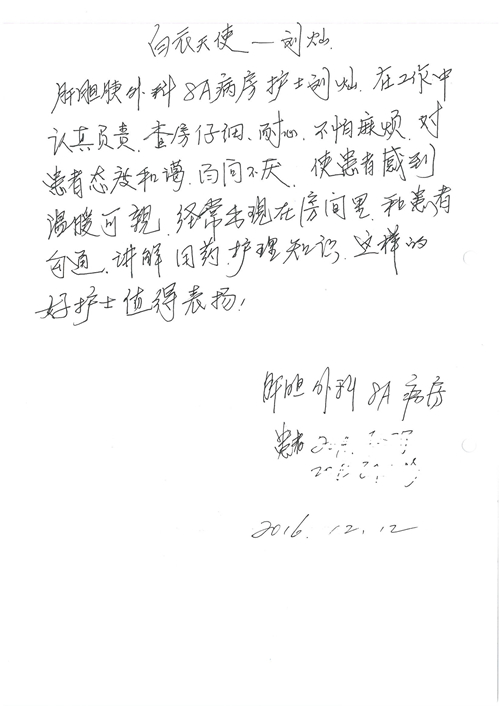 白衣天使—刘灿
肝胆胰外科8A病房护士刘灿.在工作中
认真负责.查房仔细、耐心.不怕麻烦.对
患者态度和谐.百问不厌.使患者感到
温暖可亲.经常出现在房间里.和患者
勾通.讲解用药.护理知识.这样的
好护士值得表扬!
肝胆外科8A病房
患者
2016.12.12